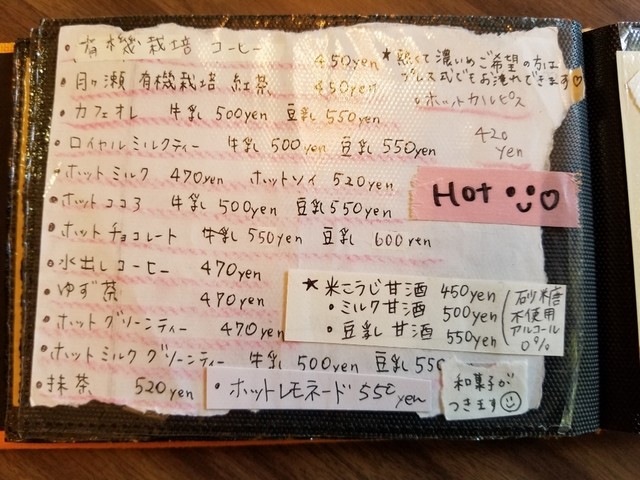 ・有機栽培 コーヒー 450yen
★熱くて濃いめご希望の方は
プレス式でもお淹れできます♡
・月ヶ瀬 有機栽培 紅茶 450yen
・ホットカルピス
420
yen
・カフェオレ 牛乳 500yen 豆乳 550yen
・ロイヤルミルクティー 牛乳 500yen 豆乳 550yen
・ホットミルク 470yen ホットソイ 520yen
Hot
・ホットココア 牛乳 500yen 豆乳 550yen
・ホットチョコレート 牛乳 550yen 豆乳 600yen
・水出しコーヒー 470yen
・ゆず茶 470yen
★米こうじ甘酒 450yen
・ミルク甘酒 500yen
・豆乳 甘酒 550yen
砂糖
不使用
アルコール
0%
・ホットグリーンティー 470yen
・ホットミルク グリーンティー 牛乳 500yen 豆乳 550
・抹茶 520yen
・ホットレモネード 550yen
和菓子が
つきます